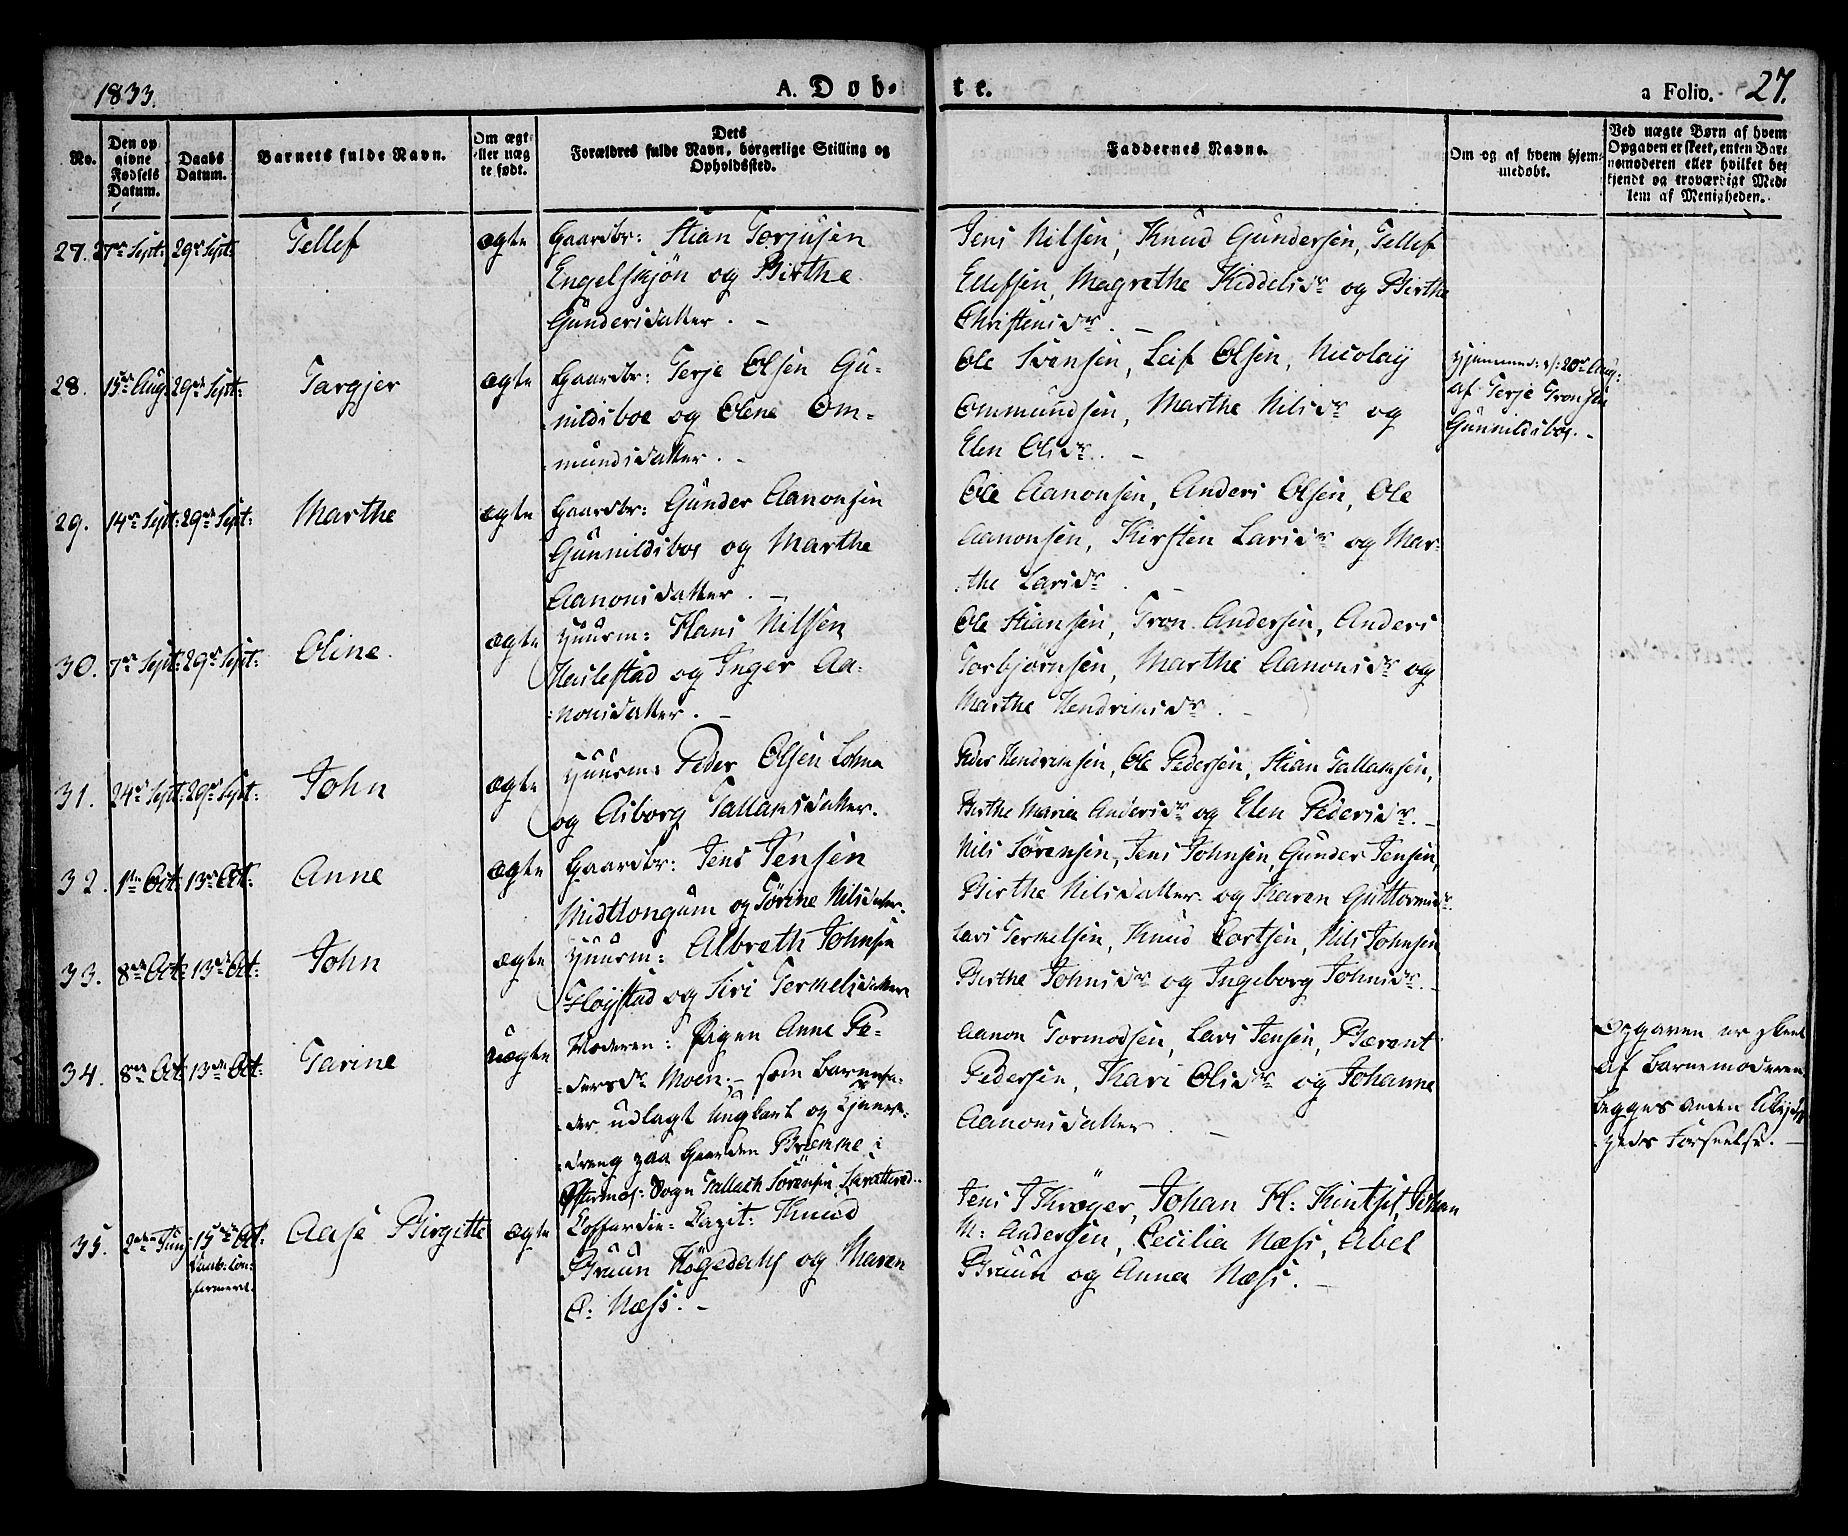 1833.
A. Døb-
te.
a Folio. 27.
No.
Den op
givne
Fødsels
Datum.
Daabs
Datum.
Barnets fulde Navn.
Om ægte
eller uæg
te født.
Dets
Forældres fulde Navn, borgerlige Stilling og
Opholdssted.
Faddernes Navne.
Om og af hvem hjem-
medøbt.
Ved uægte Børn af hvem
Opgaven er skeet, enten Bar-
nemoderen eller hvilket be-
kjendt og troværdigt Med-
lem af Menigheden.
27. 27de Sept: 29de Sept: Tellef ægte
Gaardbr: Stian Torjusen
Engelskjøn og Birthe
Gundersdatter. -
Jens Nilsen, Knud Gundersen, Tellef
Ellefsen, Magrethe Kiddelsdr og Birthe
Christensdr. -
28. 15de Aug: 29de Sept: Targjer ægte
Gaardbr: Terje Olsen Gu-
nildsboe og Olene Om-
mundsdatter. -
Ole Svensen, Leif Olsen, Nicolaÿ
Ommundsen, Marthe Nilsdr og
Elen Olsdr. -
Hjemmed: d: 20de Aug:
af Terje Tronsen
Gunnildsboe. -
29. 14de Sept: 29de Sept: Marthe ægte
Gaardbr: Gunder Aanonsen
Gunnildsboe og Marthe
Aanonsdatter. -
Ole Aanonsen, Anders Olsen, Ole
Aanonsen, Kirsten Larsdr og Mar-
the Larsdr. -
30. 7de Sept: 29de Sept: Oline. ægte
Huusm: Hans Nilsen
Heilestad og Inger Aa-
nonsdatter. -
Ole Stiansen, Tron Andersen, Anders
Torbjørnsen, Marthe Aanonsdr og
Marthe Hendriksdr. -
31. 24de Sept: 29de Sept: John ægte
Huusm: Peder Olsen Lohna
og Asborg Tallaksdatter.
Peder Hendriksen, Ole Pedersen, Stian Tallaksen,
Birthe Maria Andersdr og Elen Pedersdr. -
32. 1ste Oct: 13de Oct: Anne ægte
Gaardbr: Jens Jensen
Midtlongum og Tørine Nilsdatter.
Nils Sørensen, Jens Johnsen, Gunder Jensen,
Birthe Nilsdatter og Karen Guttormsdr.
33. 8de Oct: 13de Oct: John ægte
Huusm: Albreth Johnsen
Høystad og Siri Terkelsdatter
Lars Terkelsen, Knud Cortsen, Nils Johnsen
Birthe Johnsdr og Ingeborg Johnsdr. -
34. 8de Oct: 13de Oct: Tarine uægte
Moderen: Pigen Anne Pe-
dersdr Moen. - som Barnefa-
der udlagt Ungkarl og Tjeneste-
dreng paa Gaarden Bremme i
Østermol: Sogn Tallach Sørensen Skratterød.
Aanon Tormodsen, Lars Jensen, Bærent
Pedersen, Kari Olsdr og Johanne
Aanonsdatter. -
Opgaven er skeet
af Barnemoderen
begges anden
Forseelse. -
35. 2den Junj: 15de Oct: Aase Birgitte ægte
Daab: con-
firmeret.
Coffardie- Capit: Knud
Bruun Høgedahl og Maren
C: Næss. -
Jens T Krøger, Johan H: Kintsel, Johan
M: Andersen, Cecilia Næss, Abel
Bruun og Anna Næss. -